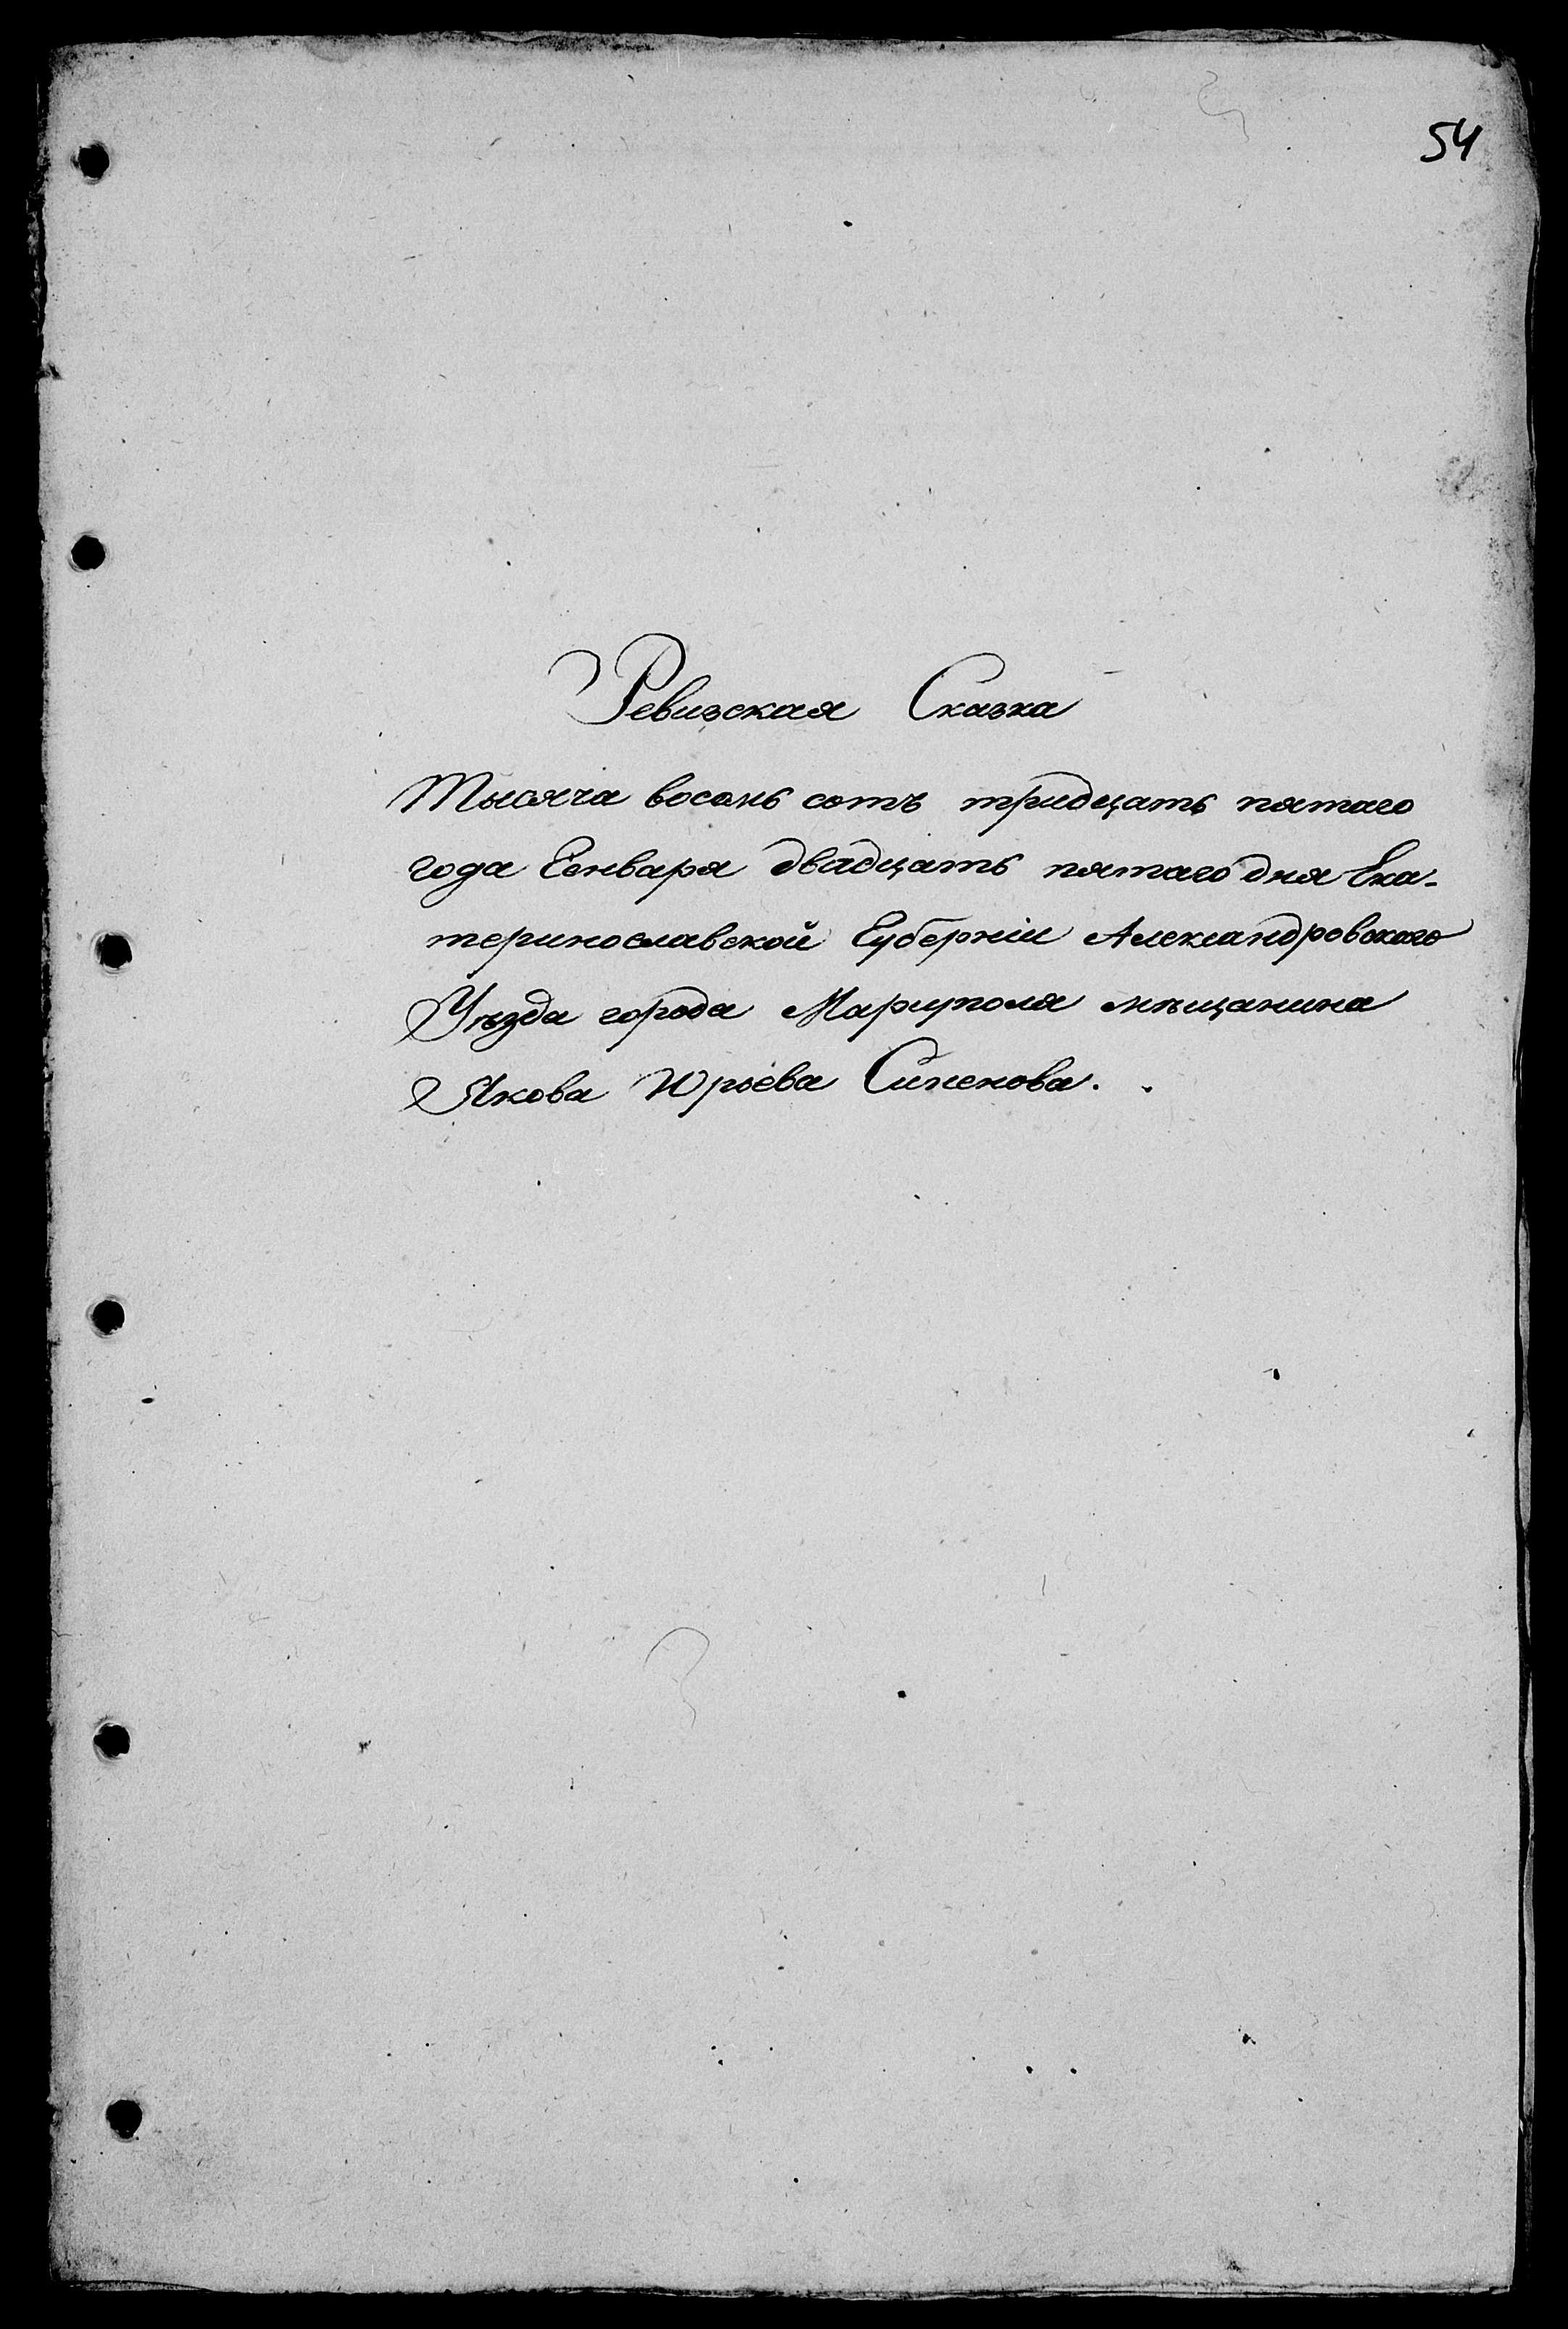 54
Ревизская Сказка
Тысяча восемь сотъ тридцать пятаго
года Генваря двадцать пятаго дня Ека-
теринославской Губерніи Александровского
Уѣзда города Маріуполя мѣщанина
Якова Юрьева